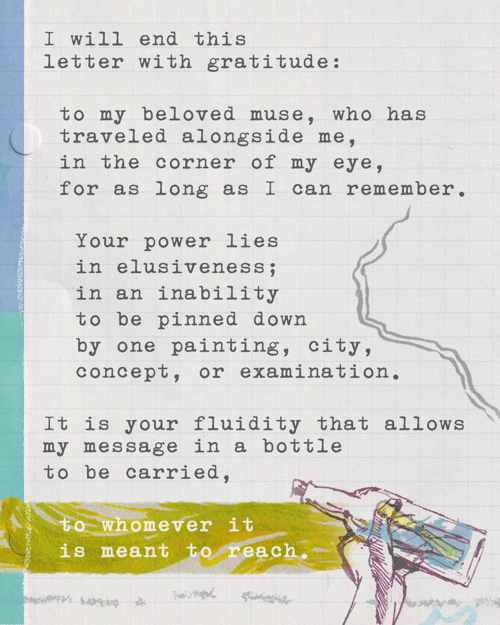 I will end this
letter with gratitude:
to my beloved muse, who has
traveled alongside me,
in the corner of my eye,
for as long as I can remember.
Your power lies
in elusiveness;
in an inability
to be pinned down
by one painting, city,
concept, or examination.
It is your fluidity that allows
my message in a bottle
to be carried,
to whomever it
is meant to reach.